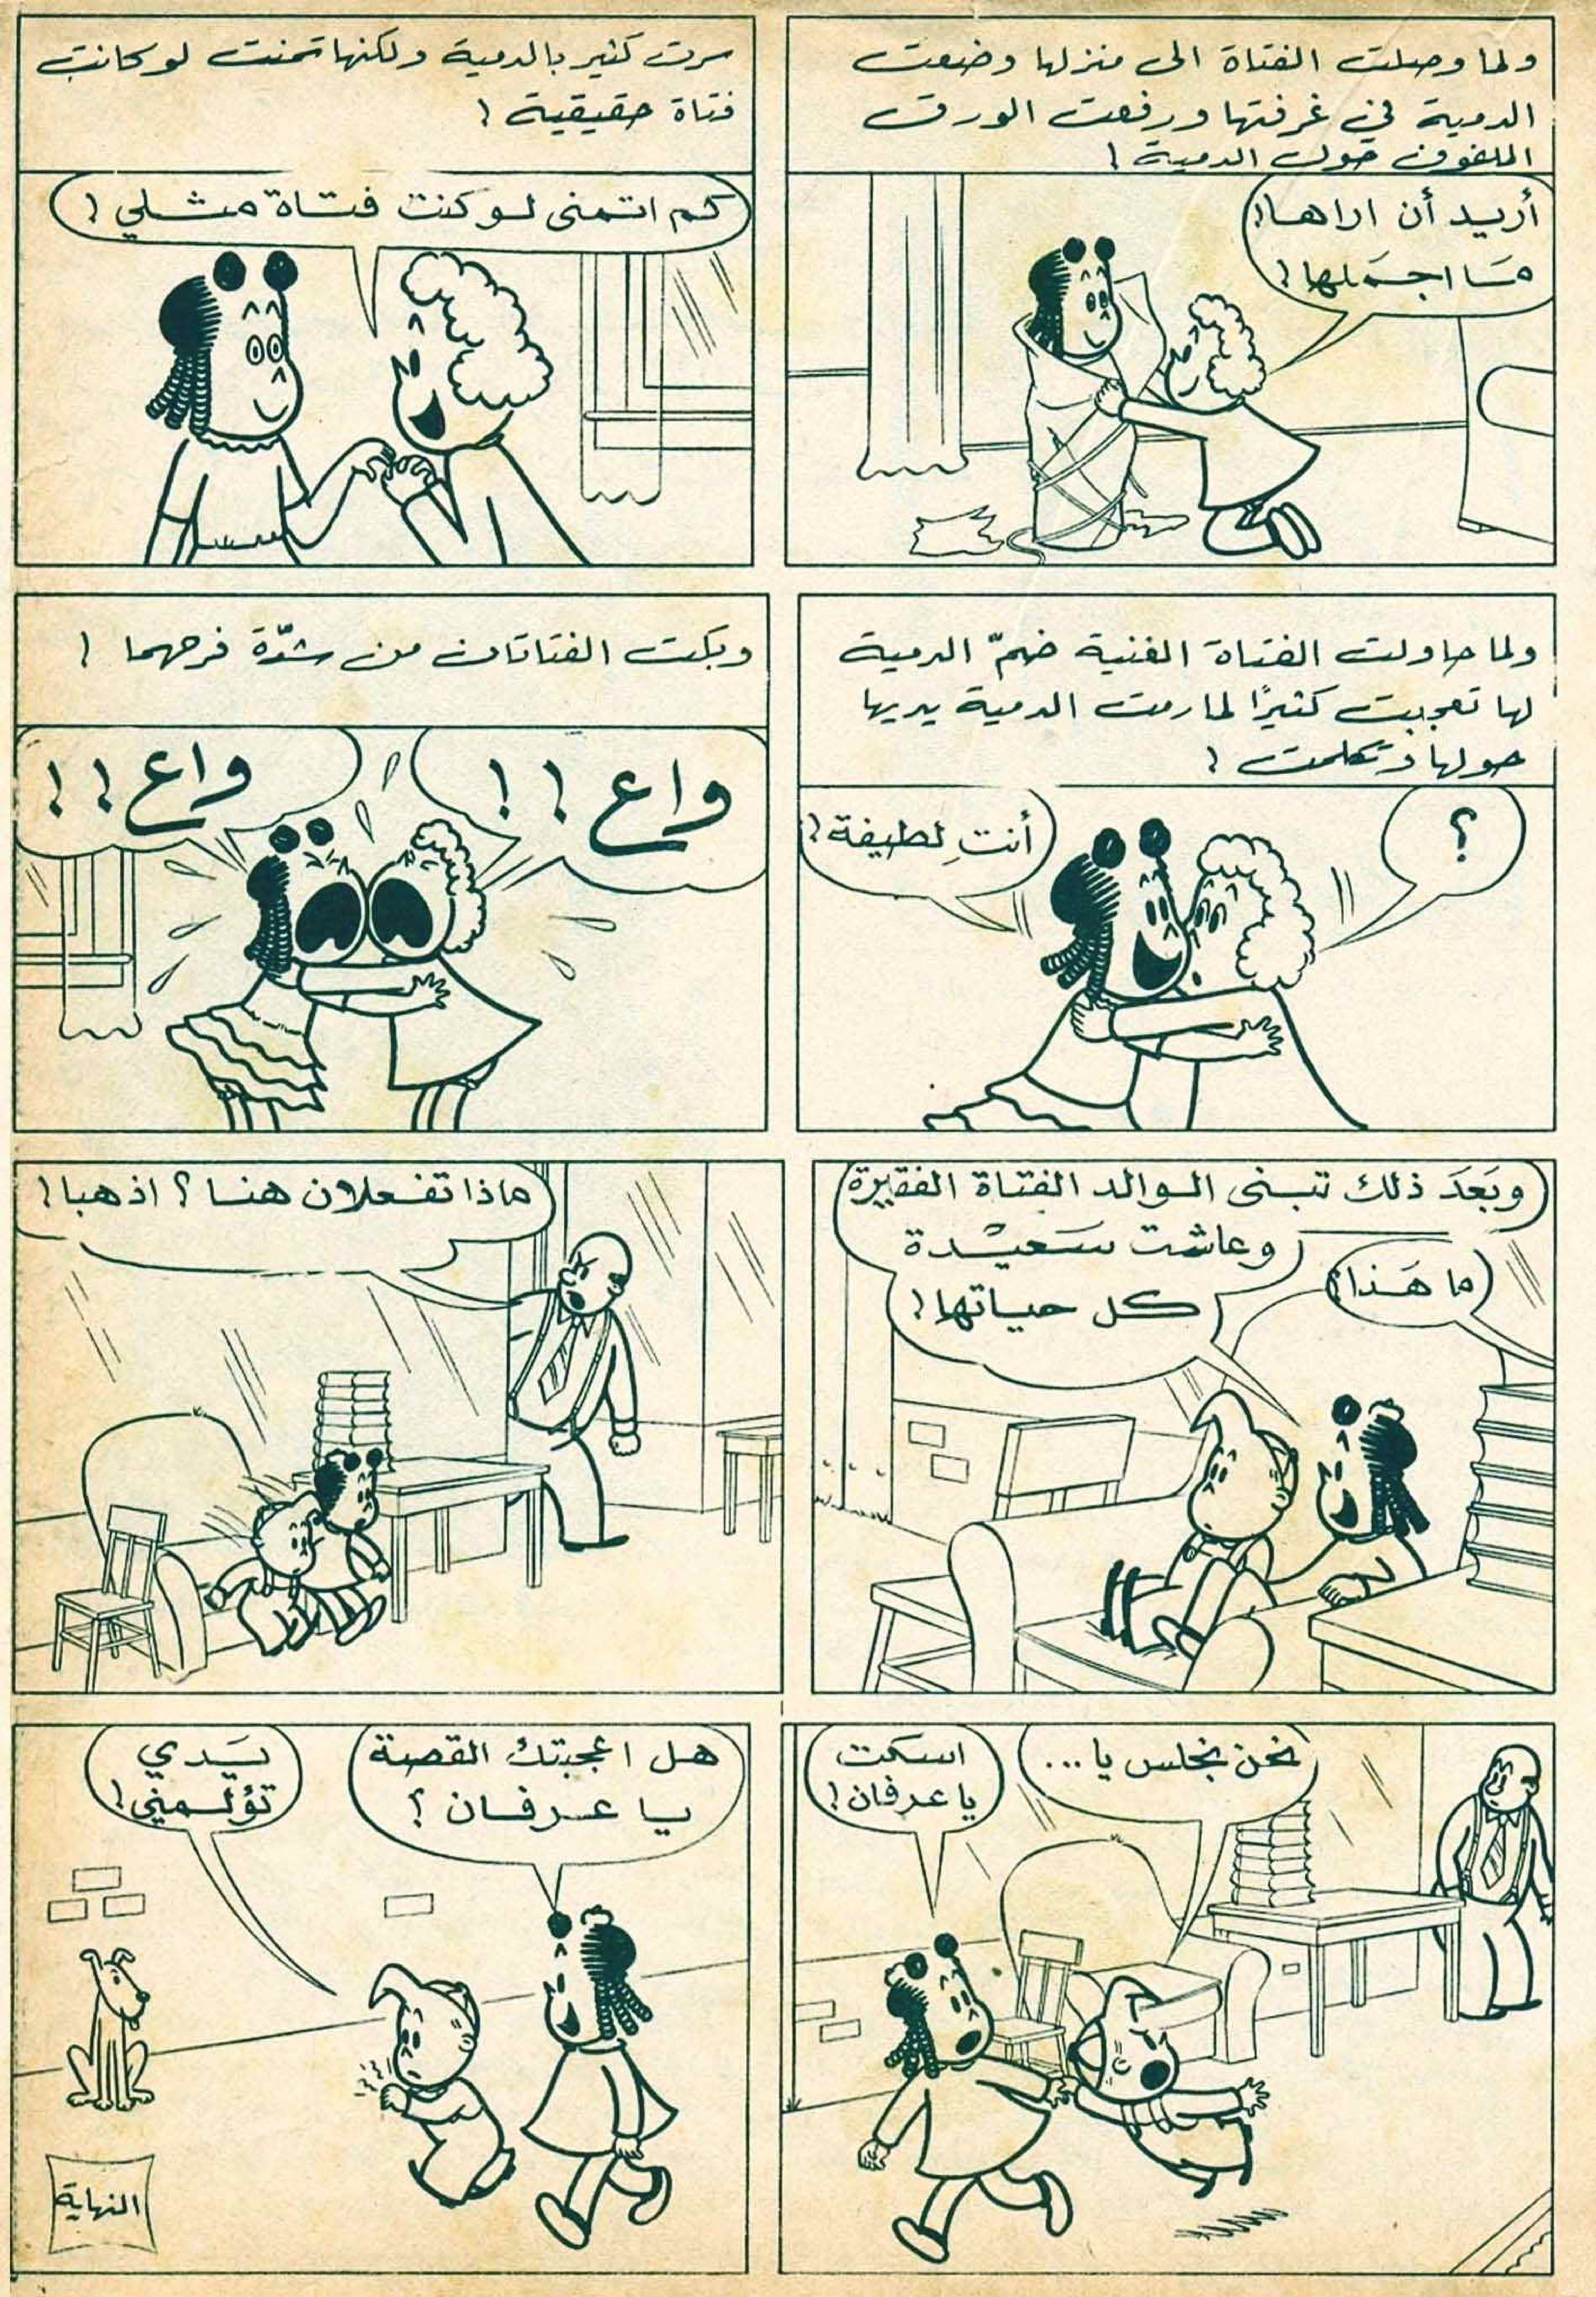 ولما وصلت الفتاة الى منزلها وضعت
الدمية في غرفتها ورفعت الورق
الملفوف حول الدمية !
أريد أن اراها!
ما اجملها !
سرت كثير بالدمية ولكنها تمنت لو كانت
فتاة حقيقية !
كم اتمنى لو كنت فتاة مثلي !
ولما حاولت الفتاة الغنية ضمّ الدمية
لها تعجبت كثيرًا لما رمت الدمية يديها
حولها وتكلمت !
؟
أنتِ لطيفة !
وبكت الفتاتان من شدّة فرحهما !
واع !!
واع !!
وبَعدَ ذلك تبنى الوالد الفتاة الفقيرة
وعاشت سَعيدة
كل حياتها !
ما هَذا؟
ماذا تفعلان هنا ؟ اذهبا !
نحن نجلس يا ...
اسكت
يا عرفان !
هل اعجبتك القصة
يا عرفان ؟
يَدي
تؤلمني !
النهاية